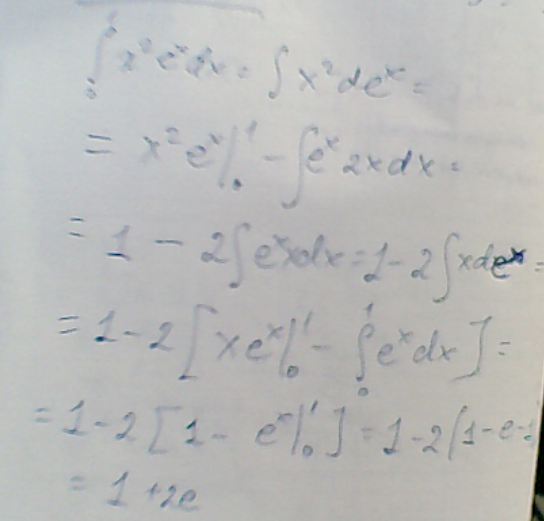 ∫₀¹ x²eˣdx = ∫ x²deˣ =
= x²eˣ|₀¹ - ∫eˣ2xdx =
= 1 - 2∫eˣxdx = 1 - 2∫xdeˣ =
= 1 - 2[xeˣ|₀¹ - ∫₀¹eˣdx] =
= 1 - 2[1 - eˣ|₀¹] = 1 - 2(1 - e -
= 1 + 2e